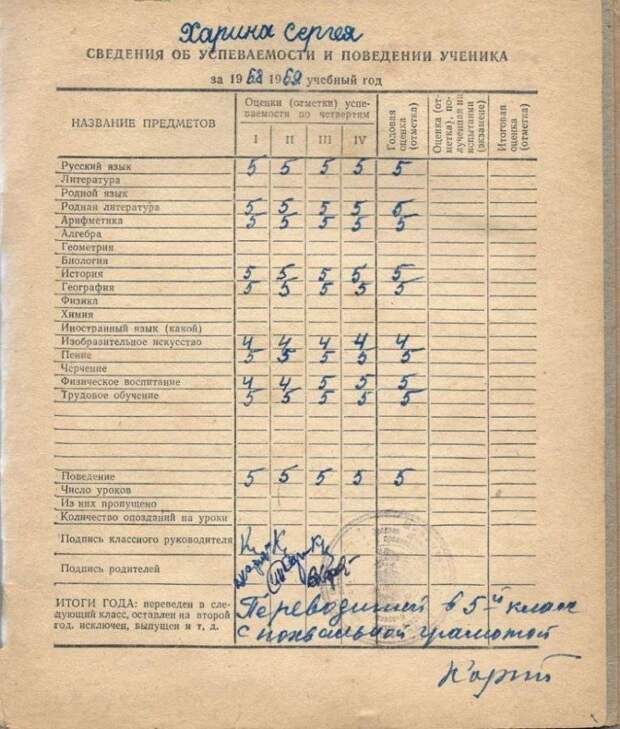 Харина Сергея
СВЕДЕНИЯ ОБ УСПЕВАЕМОСТИ И ПОВЕДЕНИИ УЧЕНИКА
за 1968 1969 учебный год
НАЗВАНИЕ ПРЕДМЕТОВ
Оценки (отметки) успе-
ваемости по четвертям
I II III IV
Годовая
оценка
(отметка)
Оценка (от-
метка), по-
лученная на
испытании
(экзамене)
Итоговая
оценка
(отметка)
Русский язык 5 5 5 5 5
Литература
Родной язык
Родная литература 5 5 5 5 5
Арифметика 5 5 5 5 5
Алгебра
Геометрия
Биология
История 5 5 5 5 5
География 5 5 5 5 5
Физика
Химия
Иностранный язык (какой)
Изобразительное искусство 4 4 4 4 4
Пение 5 5 5 5 5
Черчение
Физическое воспитание 4 4 5 5 5
Трудовое обучение 5 5 5 5 5
Поведение 5 5 5 5 5
Число уроков
Из них пропущено
Количество опозданий на уроки
Подпись классного руководителя
Подпись родителей
ИТОГИ ГОДА: переведен в сле-
дующий класс, оставлен на второй
год, исключен, выпущен и т, д.
в 5-й класс
с похвальной грамотой